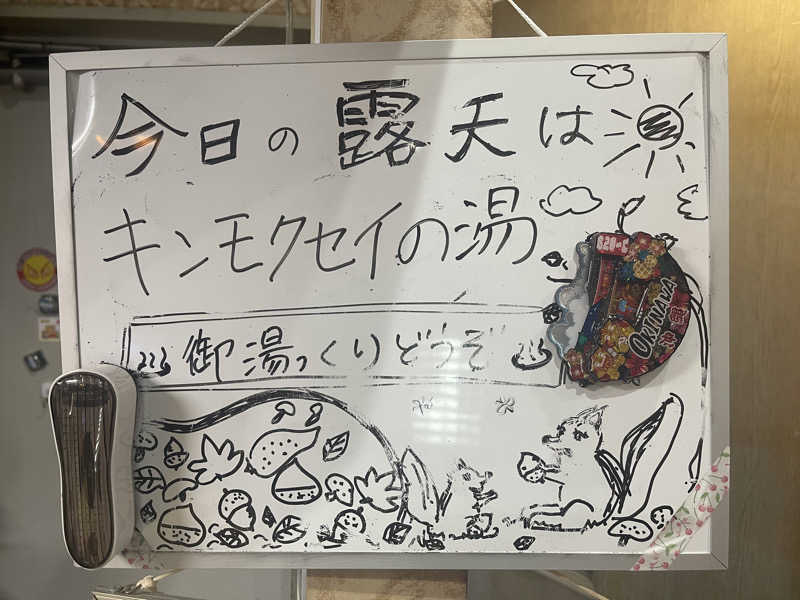 今日の露天は
キンモクセイの湯
御湯っくりどうぞ
OKINAWA